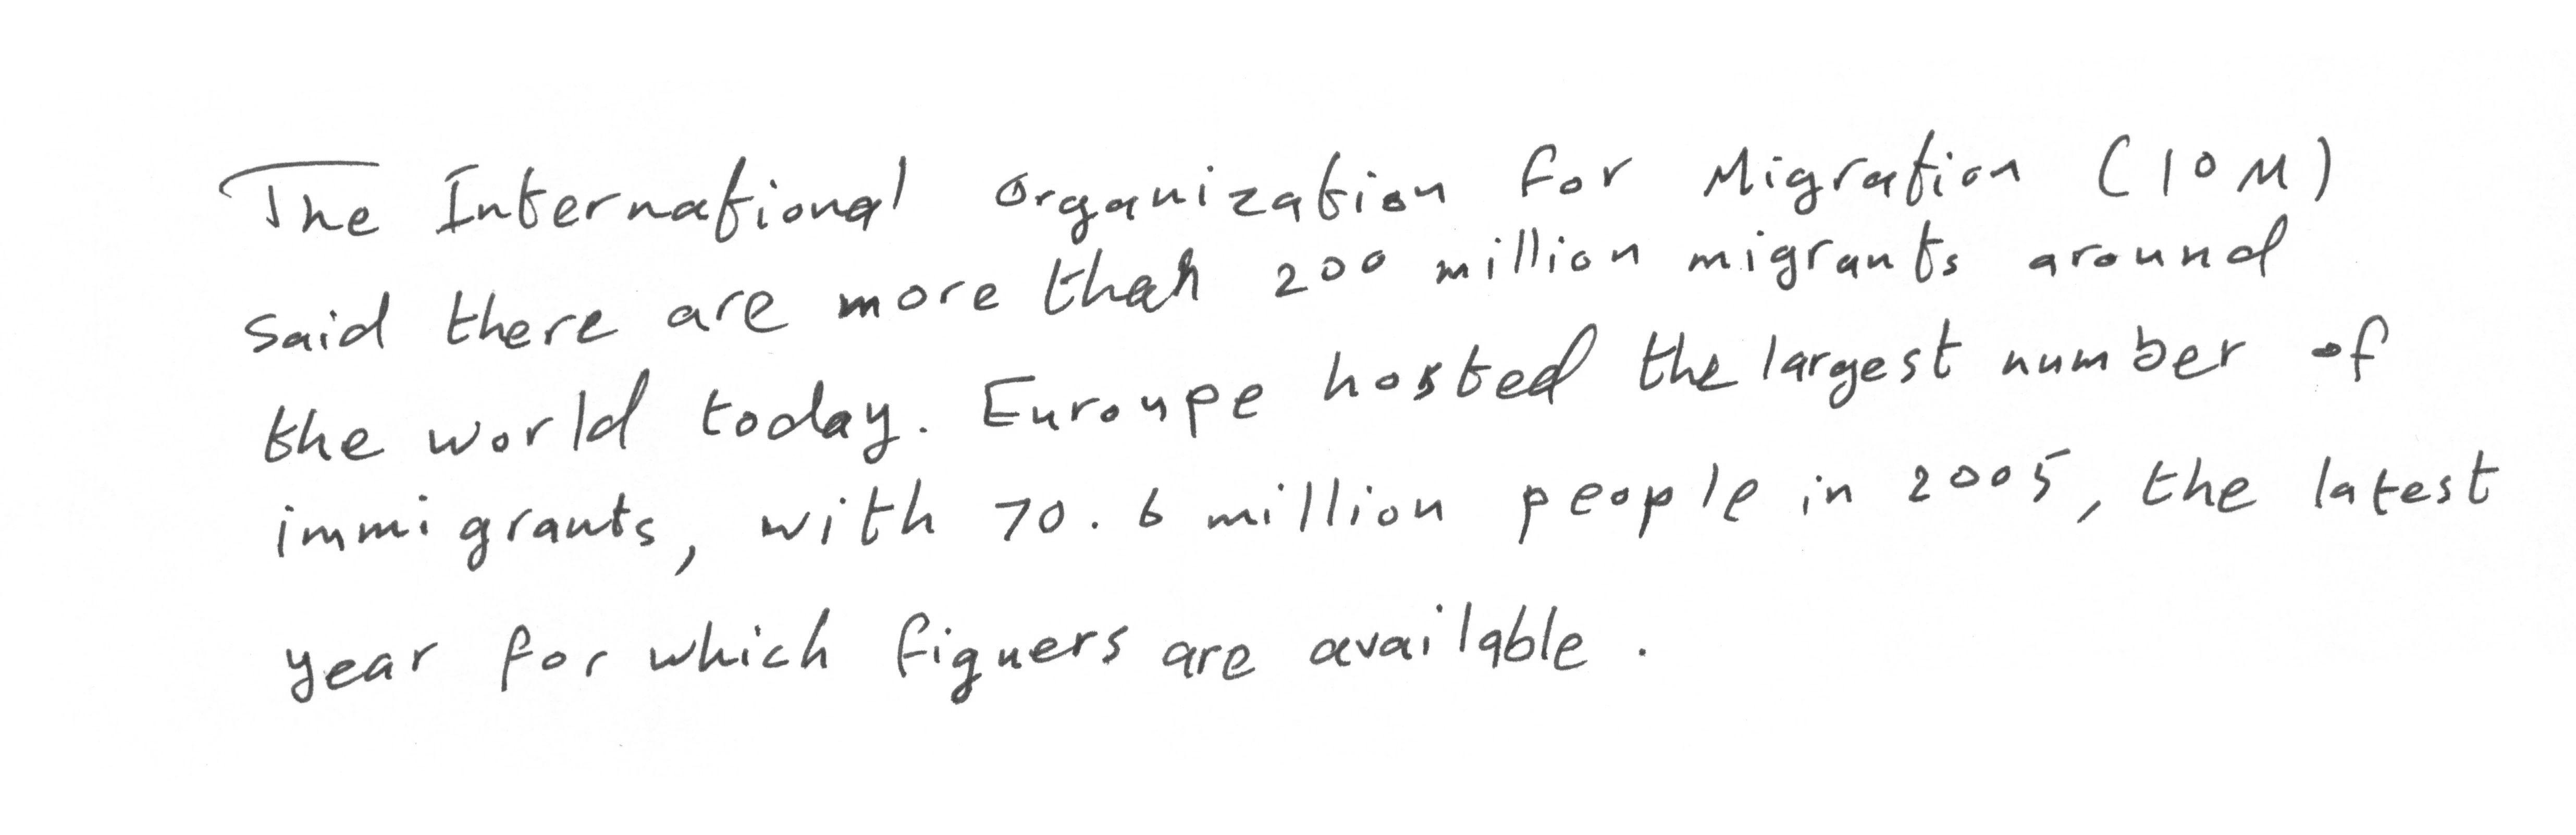 The International Organization for Migration (IOM)
said there are more than 200 million migrants around
the world today. Euroupe hosted the largest number of
immigrants, with 70.6 million people in 2005, the latest
year for which figuers are available.